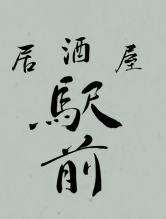 居酒屋
駅前